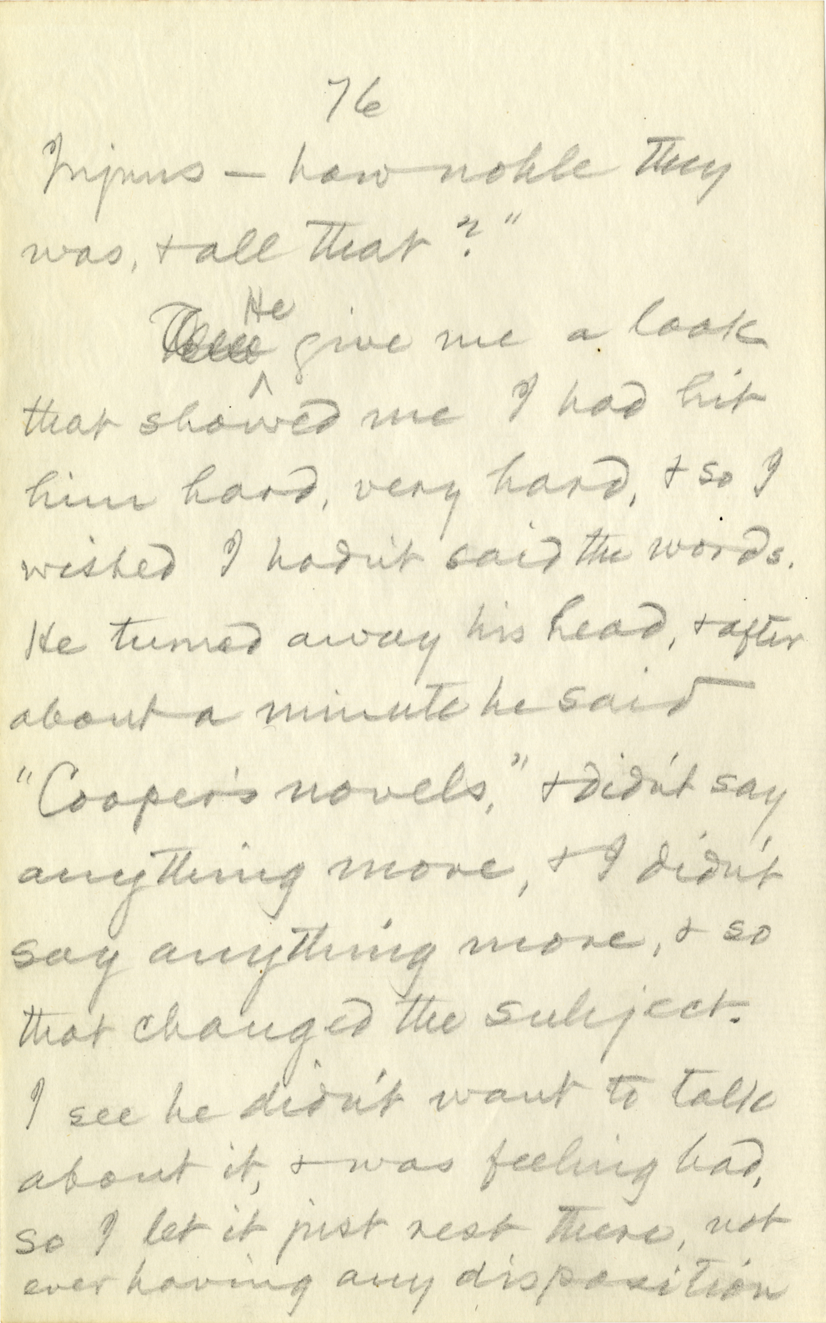 76
Injuns — how noble they
was, & all that?"
He
give me a look
that showed me I had hit
him hard, very hard, & so I
wished I hadn't said the words.
He turned away his head, & after
about a minute he said
"Cooper's novels," & didn't say
anything more, & I didn't
say anything more, & so
that changed the subject.
I see he didn't want to talk
about it, & was feeling bad,
so I let it just rest there, not
ever having any disposition